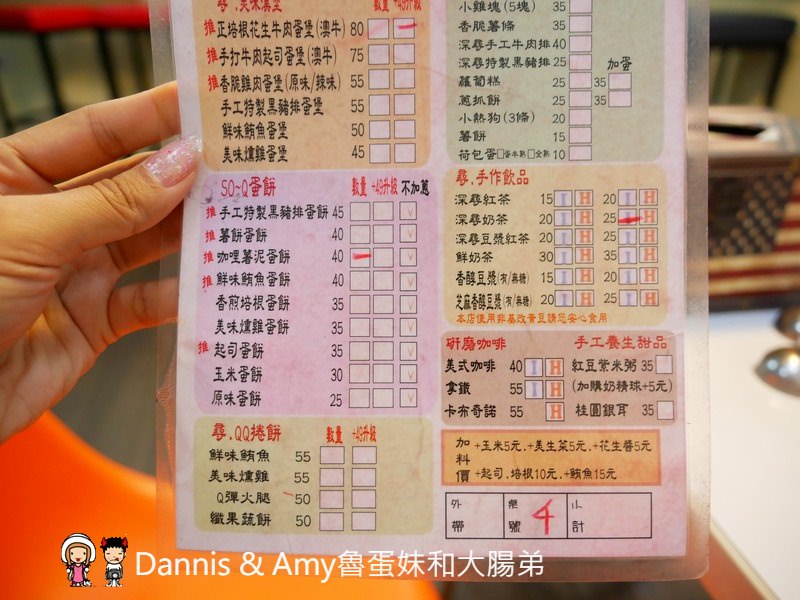 尋.美味漢堡 數量 +49升級
推 正培根花生牛肉蛋堡(澳牛) 80
推 手打牛肉起司蛋堡(澳牛) 75
推 香脆雞肉蛋堡(原味/辣味) 55
手工特製黑豬排蛋堡 55
鮮味鮪魚蛋堡 50
美味燻雞蛋堡 45
SO~Q蛋餅 數量 +49升級 不加蔥
推 手工特製黑豬排蛋餅 45
推 薯餅蛋餅 40
推 咖哩薯泥蛋餅 40
推 鮮味鮪魚蛋餅 40
香煎培根蛋餅 35
美味燻雞蛋餅 35
推 起司蛋餅 35
玉米蛋餅 30
原味蛋餅 25
尋.QQ捲餅 數量 +49升級
鮮味鮪魚 55
美味燻雞 55
Q彈火腿 50
纖果蔬餅 50
小雞塊(5塊) 35
香脆薯條 35
深尋手工牛肉排 40
深尋特製黑豬排 25 加蛋
蘿蔔糕 25 35
蔥抓餅 25 35
小熱狗(3條) 20
薯餅 15
荷包蛋 蛋半熟 全熟 10
尋.手作飲品
深尋紅茶 15 I H 20 I H
深尋奶茶 20 I H 25 I H
深尋豆漿紅茶 20 I H 25 I H
鮮奶茶 30 I H 35 I H
香醇豆漿(有/無糖) 15 I H 20 I H
芝麻香醇豆漿(有/無糖) 20 I H 25 I H
本店使用非基改黃豆請您安心食用
研磨咖啡 手工養生甜品
美式咖啡 40 I H 紅豆紫米粥 35
拿鐵 55 I H (加購奶精球+5元)
卡布奇諾 55 H 桂圓銀耳 35
加料價 +玉米5元.+美生菜5元.+花生醬5元
+起司.培根10元.+鮪魚15元
外帶 桌號 4 小計
Dannis & Amy魯蛋妹和大腸弟